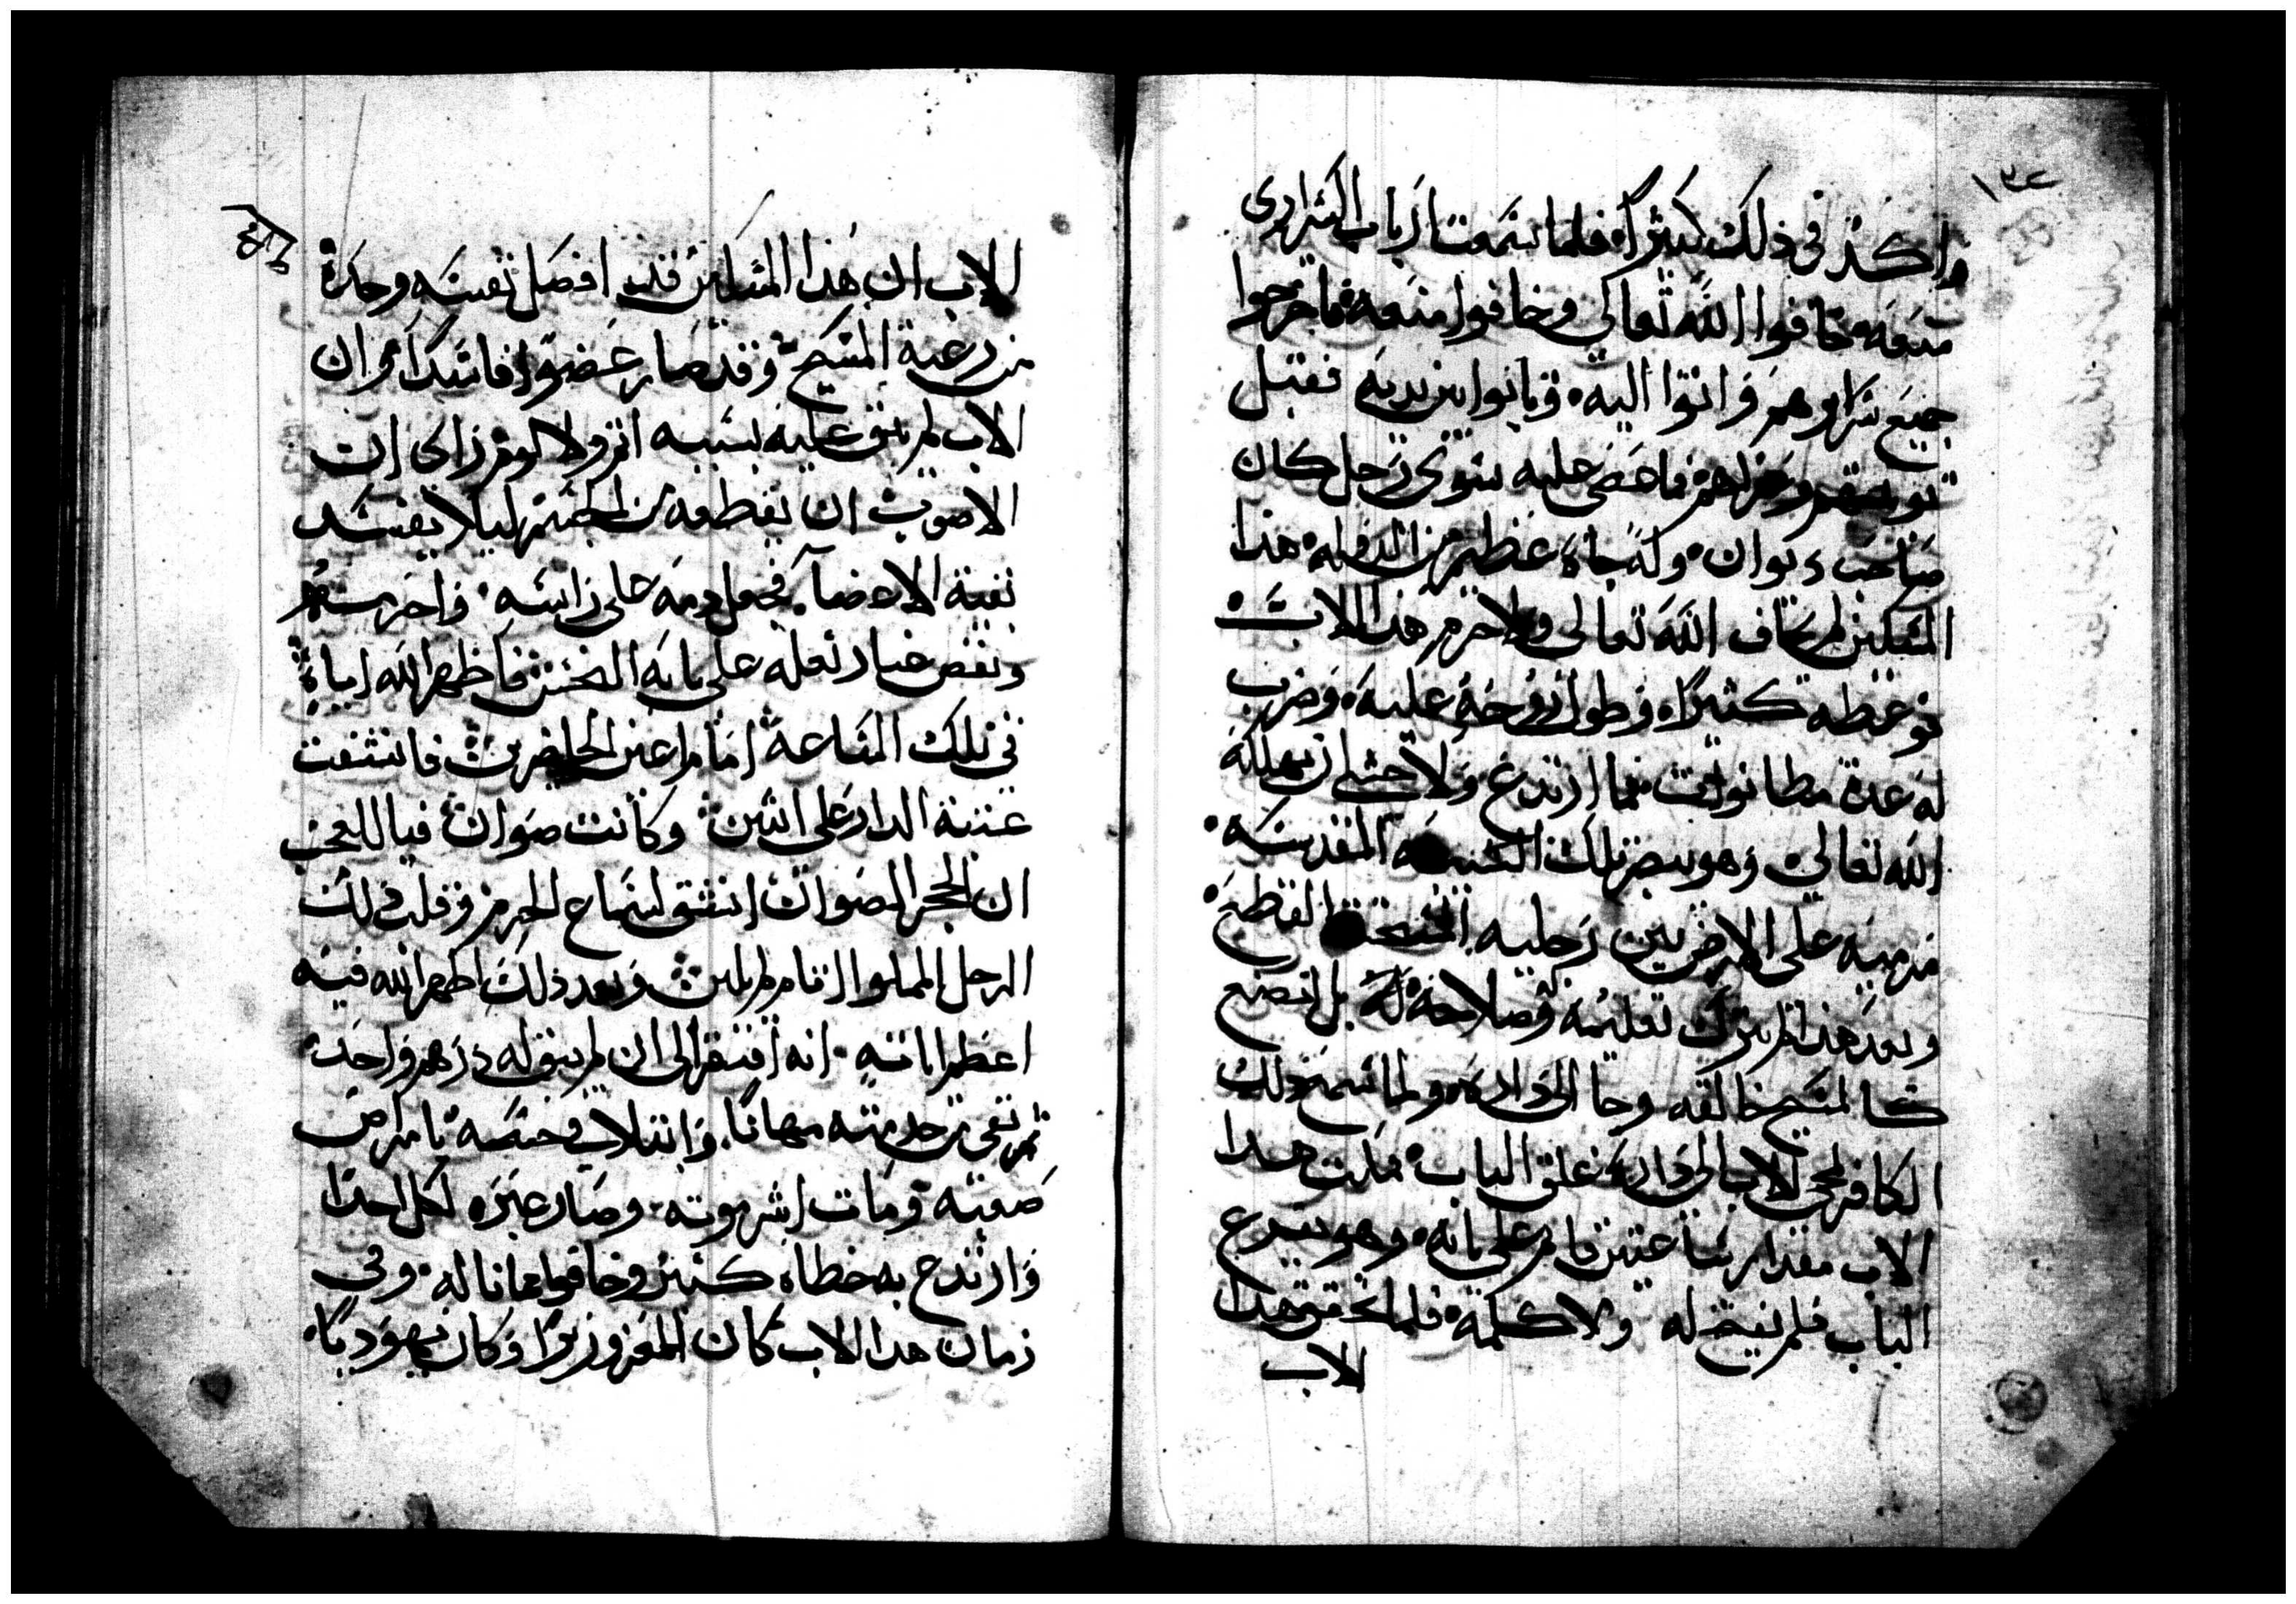 ١٣٤
واكد في ذلك كثيرا فلما سمعت ارباب السراري
منعه خافوا الله تعالى وخافوا منعه فاخرجوا
جميع سراريهم واتوا اليه وتابوا بين يديه فقبل
توبتهم وغفر لهم فما عصي عليه سوى رجل كان
صاحب ديوان وله جاه عظيم من الدوله هذا
المسكين لم يخاف الله تعالى ولا حرم هذا الاب
توعظه كثيرا وطول روحة عليه وضرب
له عدة مطانوات فما ارتدع ولا خشي ان يهلكه
الله تعالى وهو يبصر تلك الشيبه المقدسه
مرميه على الارض بين رجليه القطع
وبعد هذا لم يترك تعليمه وصلاحه له بل اتضع
كالمسيح خالقه وجا الى داره ولما سمع ذلك
الكافر بمجي الاب الى داره غلق الباب فمكث هدا
الاب مقدار ساعتين قايم على بابه وهو يقرع
الباب فلم يفتح له ولا كلمة فلما تحقق هدا
الاب
الاب ان هذا المسكين قد افصل نفسه وحده
من رعية المسيح وقد صار عضوا فاسدا وان
الاب لم يبق عليه بسببه اثم ولا لوم راى ان
الاصوب ان يقطعه من الجسم ليلا يفسد
بقية الاعضآ فجعل دمه على راسه واحرمه
ونفض غبار نعله على بابه الخشن فاظهر الله اياة
في تلك الساعة امام اعين الحاضرين فانشقت
عتبة الدار على اثنين وكانت صوان فيا للعجب
ان الحجر الصوان انشق لسماع الحرم وقلب ذلك
الرجل المملوا اثام لم يلين وبعد ذلك اظهر الله فيه
اعظم اياته انه افتقر الى ان لم يبق له درهم واحد
ثم نفي من خدمته مهانا وابتلاه في جسمه بامراض
صعبه ومات اشر موته وصار عبره لكل احدا
وارتدع به خطاه كثير وخافوا مما ناله وفي
زمان هدا الاب كان المعز وزيرا وكان يهوديا